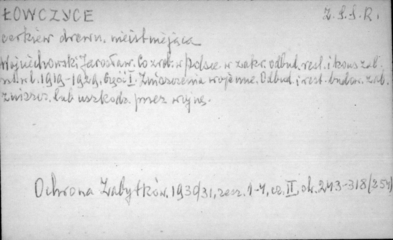 ŁOWCZYCE Z.S.S.R.
cerkiew drewn. nieistniejąca
Wojciechowski Jarosław. Co zrob. w Polsce w zakr. odbud. rest. i kons. zab.
1919-1929. Część I. Zniszczenia wojenne. Odbud. i rest. budow. zab.
zniszcz. lub uszkodz. przez wojnę.
Ochrona Zabytków. 1930/31, zesz. 1-4, cz. II, str. 243-318 (254)